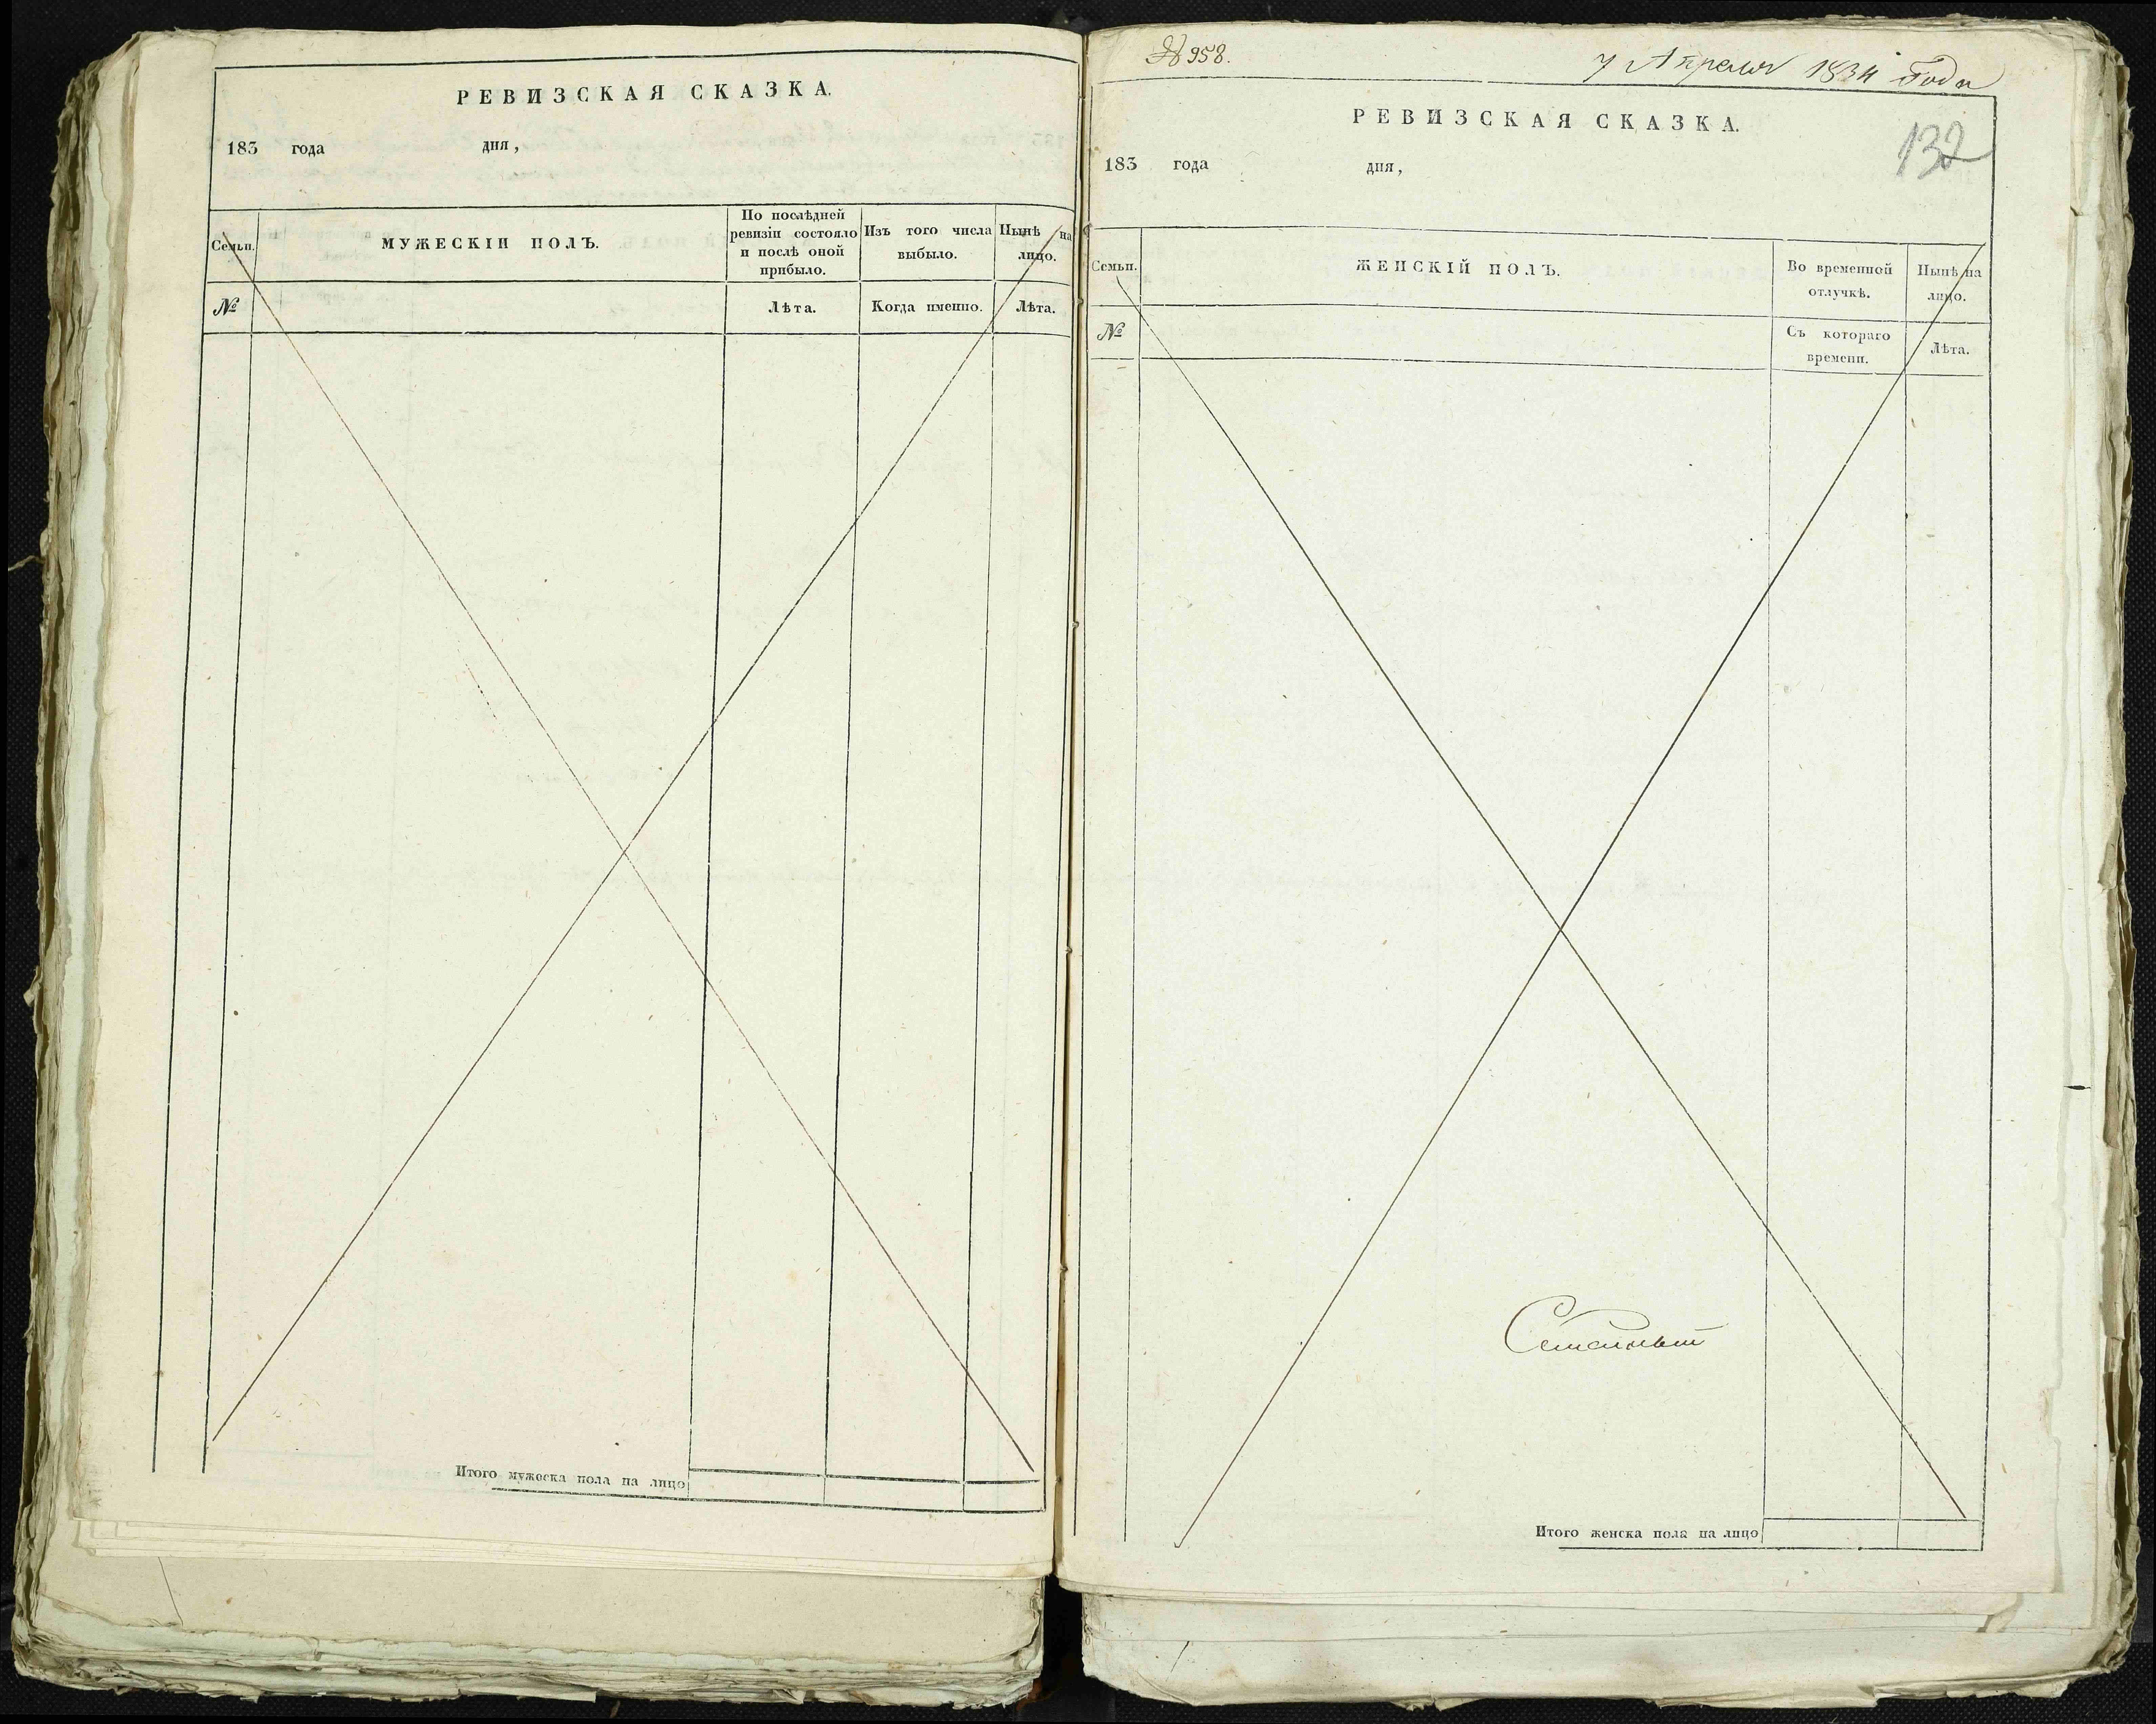 РЕВИЗСКАЯ СКАЗКА.
183 года дня,
Семьи.
МУЖЕСКІЙ ПОЛЪ.
По послѣдней ревизіи состояло и послѣ оной прибыло.
Изъ того числа выбыло.
Нынѣ на лицо.
№
Лѣта.
Когда именно.
Лѣта.
Итого мужеска пола на лицо
№ 958.
7 Апреля 1834 Года
РЕВИЗСКАЯ СКАЗКА.
132
183 года дня,
Семьи.
ЖЕНСКІЙ ПОЛЪ.
Во временной отлучкѣ.
Нынѣ на лицо.
№
Съ котораго времени.
Лѣта.
Итого женска пола на лицо